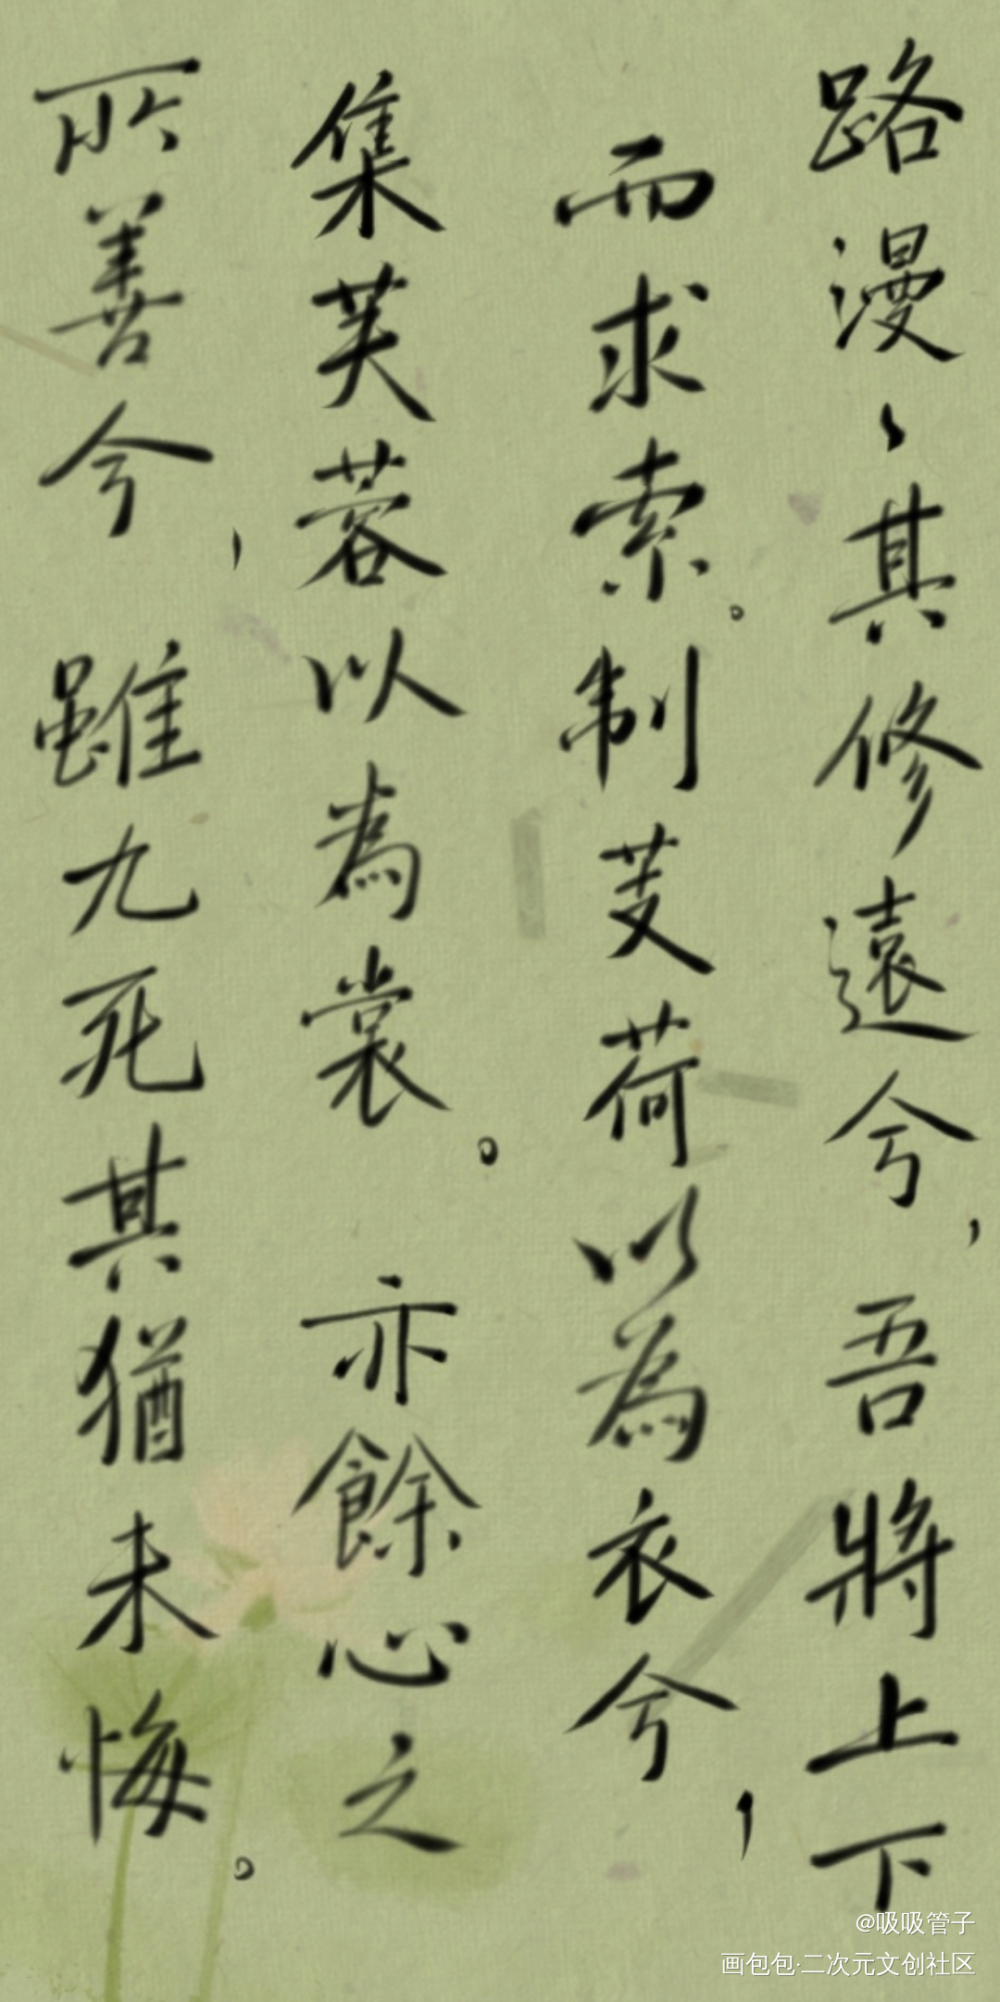 路漫〻其修遠兮，吾將上下
而求索。制芰荷以為衣兮，
集芙蓉以為裳。亦餘心之
所善兮，雖九死其猶未悔。
@吸吸管子
画包包·二次元文创社区